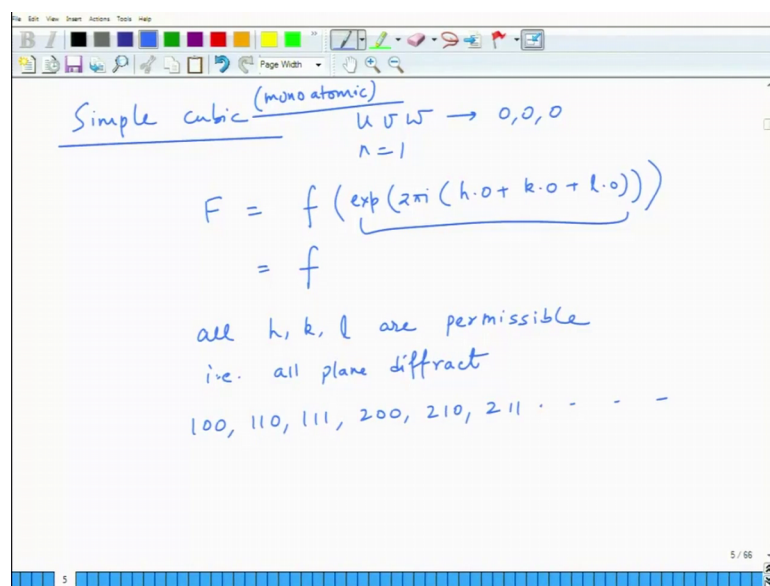 File Edit View Insert Actions Tools Help
B I
Page Width
Simple cubic (monoatomic)
u v w → 0,0,0
n = 1
F = f (exp(2πi (h·0 + k·0 + l·0)))
= f
all h, k, l are permissible
i.e. all plane diffract
100, 110, 111, 200, 210, 211 · - - -
5 / 66
5